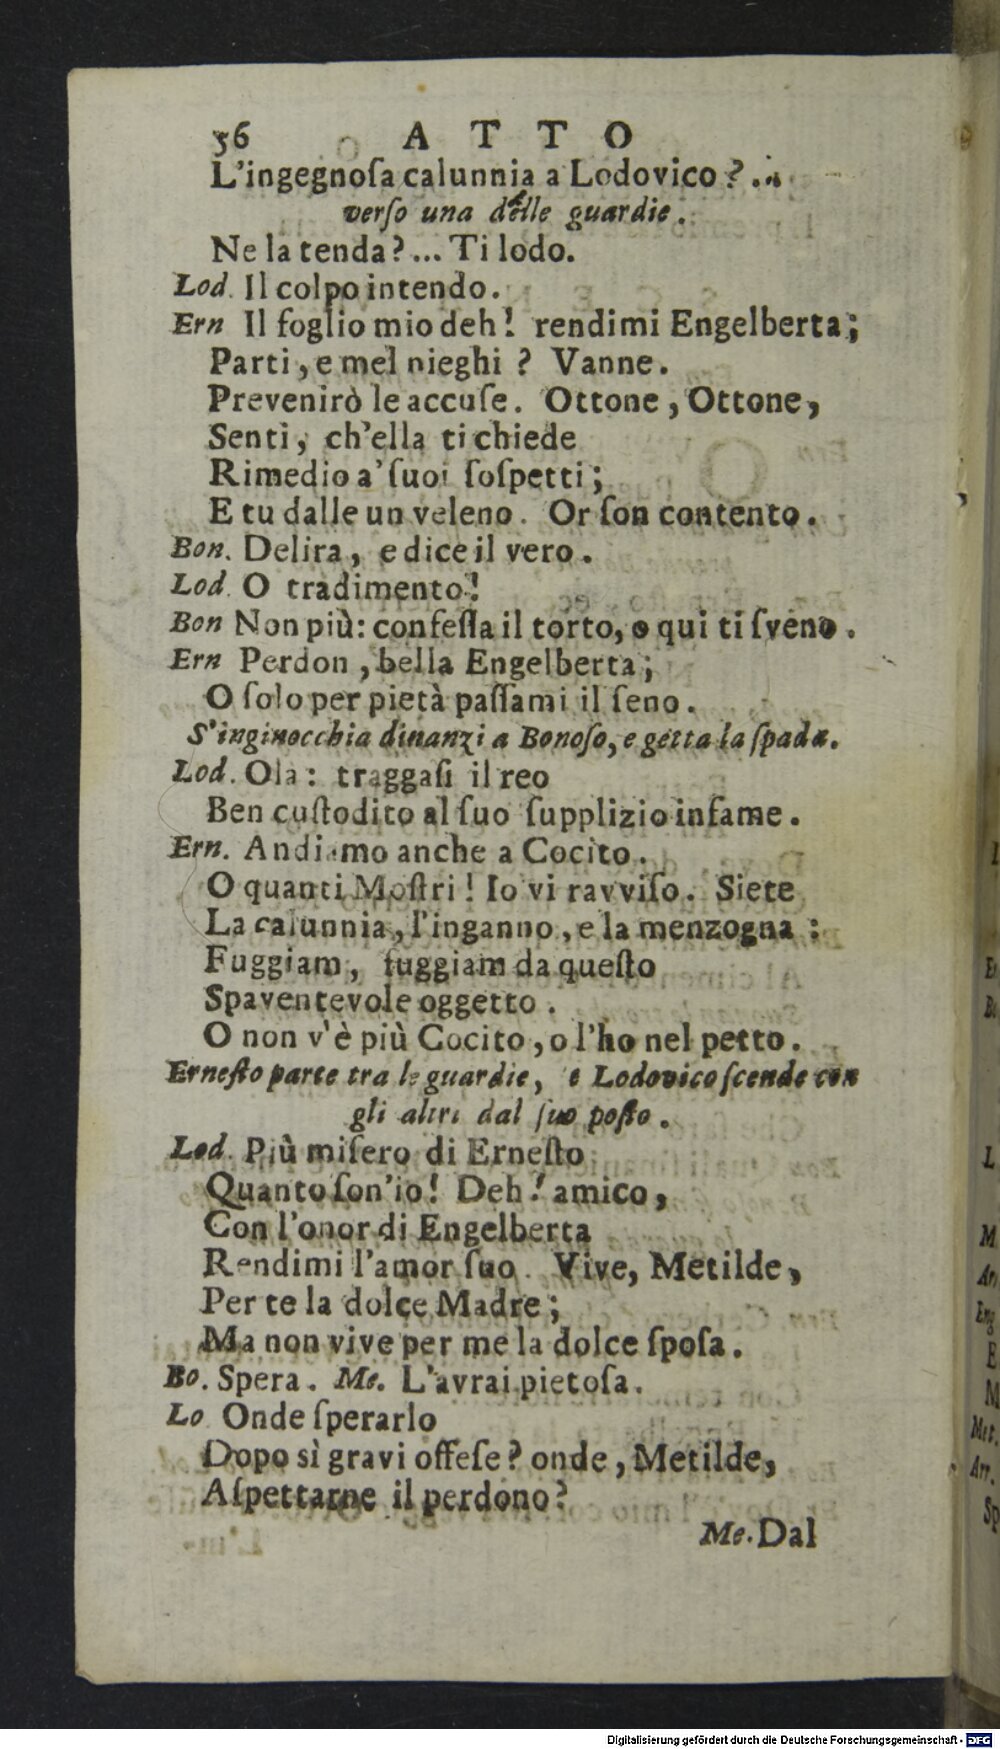 56 ATTO
L'ingegnoſa calunnia a Lodovico? ...
verſo una delle guardie.
Ne la tenda? ... Ti lodo.
Lod. Il colpo intendo.
Ern Il foglio mio deh! rendimi Engelberta;
Parti, e mel nieghi? Vanne.
Prevenirò le accuſe. Ottone, Ottone,
Senti, ch'ella ti chiede
Rimedio a' ſuoi ſoſpetti;
E tu dalle un veleno. Or ſon contento.
Bon. Delira, e dice il vero.
Lod. O tradimento!
Bon Non più: confeſſa il torto, o qui ti ſveno.
Ern Perdon, bella Engelberta;
O ſolo per pietà paſſami il ſeno.
S'inginocchia dinanzi a Bonoſo, e getta la ſpada.
Lod. Ola: traggaſi il reo
Ben cuſtodito al ſuo ſupplizio infame.
Ern. Andiamo anche a Cocito.
O quanti Moſtri! Io vi ravviſo. Siete
La calunnia, l'inganno, e la menzogna:
Fuggiam, fuggiam da queſto
Spaventevole oggetto.
O non v'è più Cocito, o l'ho nel petto.
Erneſto parte tra le guardie, e Lodovico ſcende con
gli altri dal ſuo poſto.
Lod. Più miſero di Erneſto
Quanto ſon'io! Deh! amico,
Con l'onor di Engelberta
Rendimi l'amor ſuo. Vive, Metilde,
Per te la dolce Madre;
Ma non vive per me la dolce ſpoſa.
Bo. Spera. Me. L'avrai pietoſa.
Lo Onde ſperarlo
Dopo sì gravi offeſe? onde, Metilde,
Aſpettarne il perdono?
Me. Dal
Digitalisierung gefördert durch die Deutsche Forschungsgemeinschaft - DFG